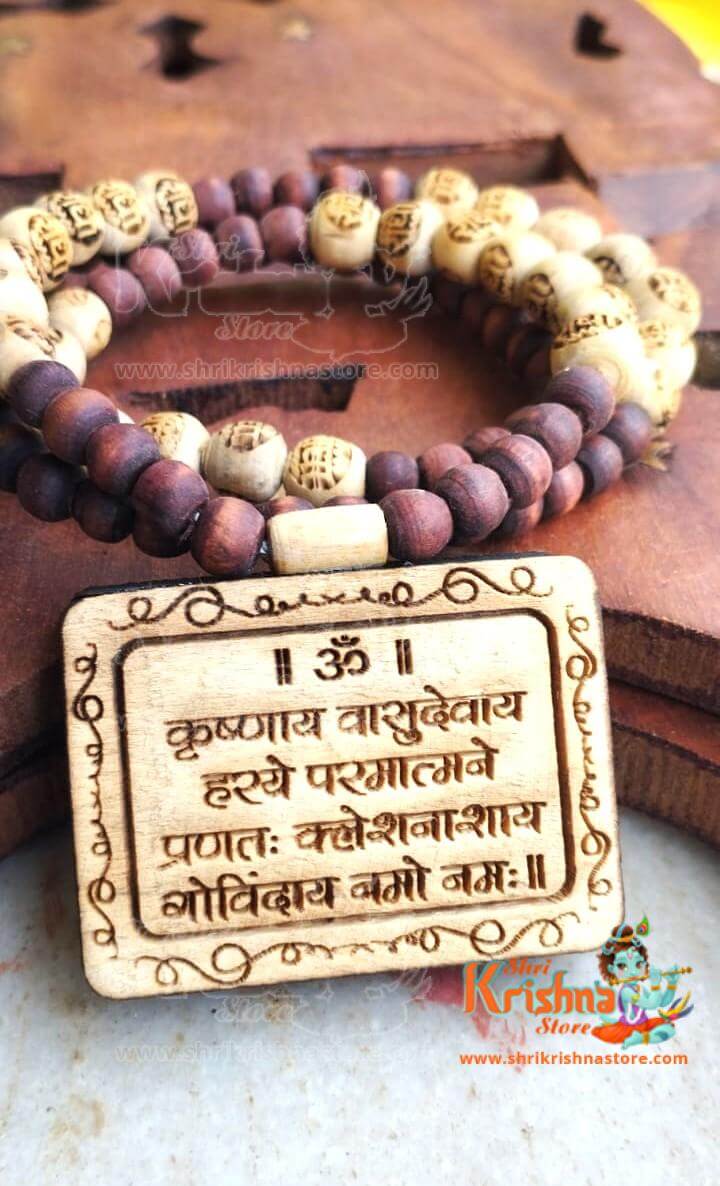 Shri
Store
www.shrikrishnastore.com
॥ ॐ ॥
कृष्णाय वासुदेवाय
हरये परमात्मने
प्रणतः क्लेशनाशाय
गोविंदाय नमो नमः॥
Shri
Krishna
Store
www.shrikrishnastore.com
www.shrikrishnastore.com